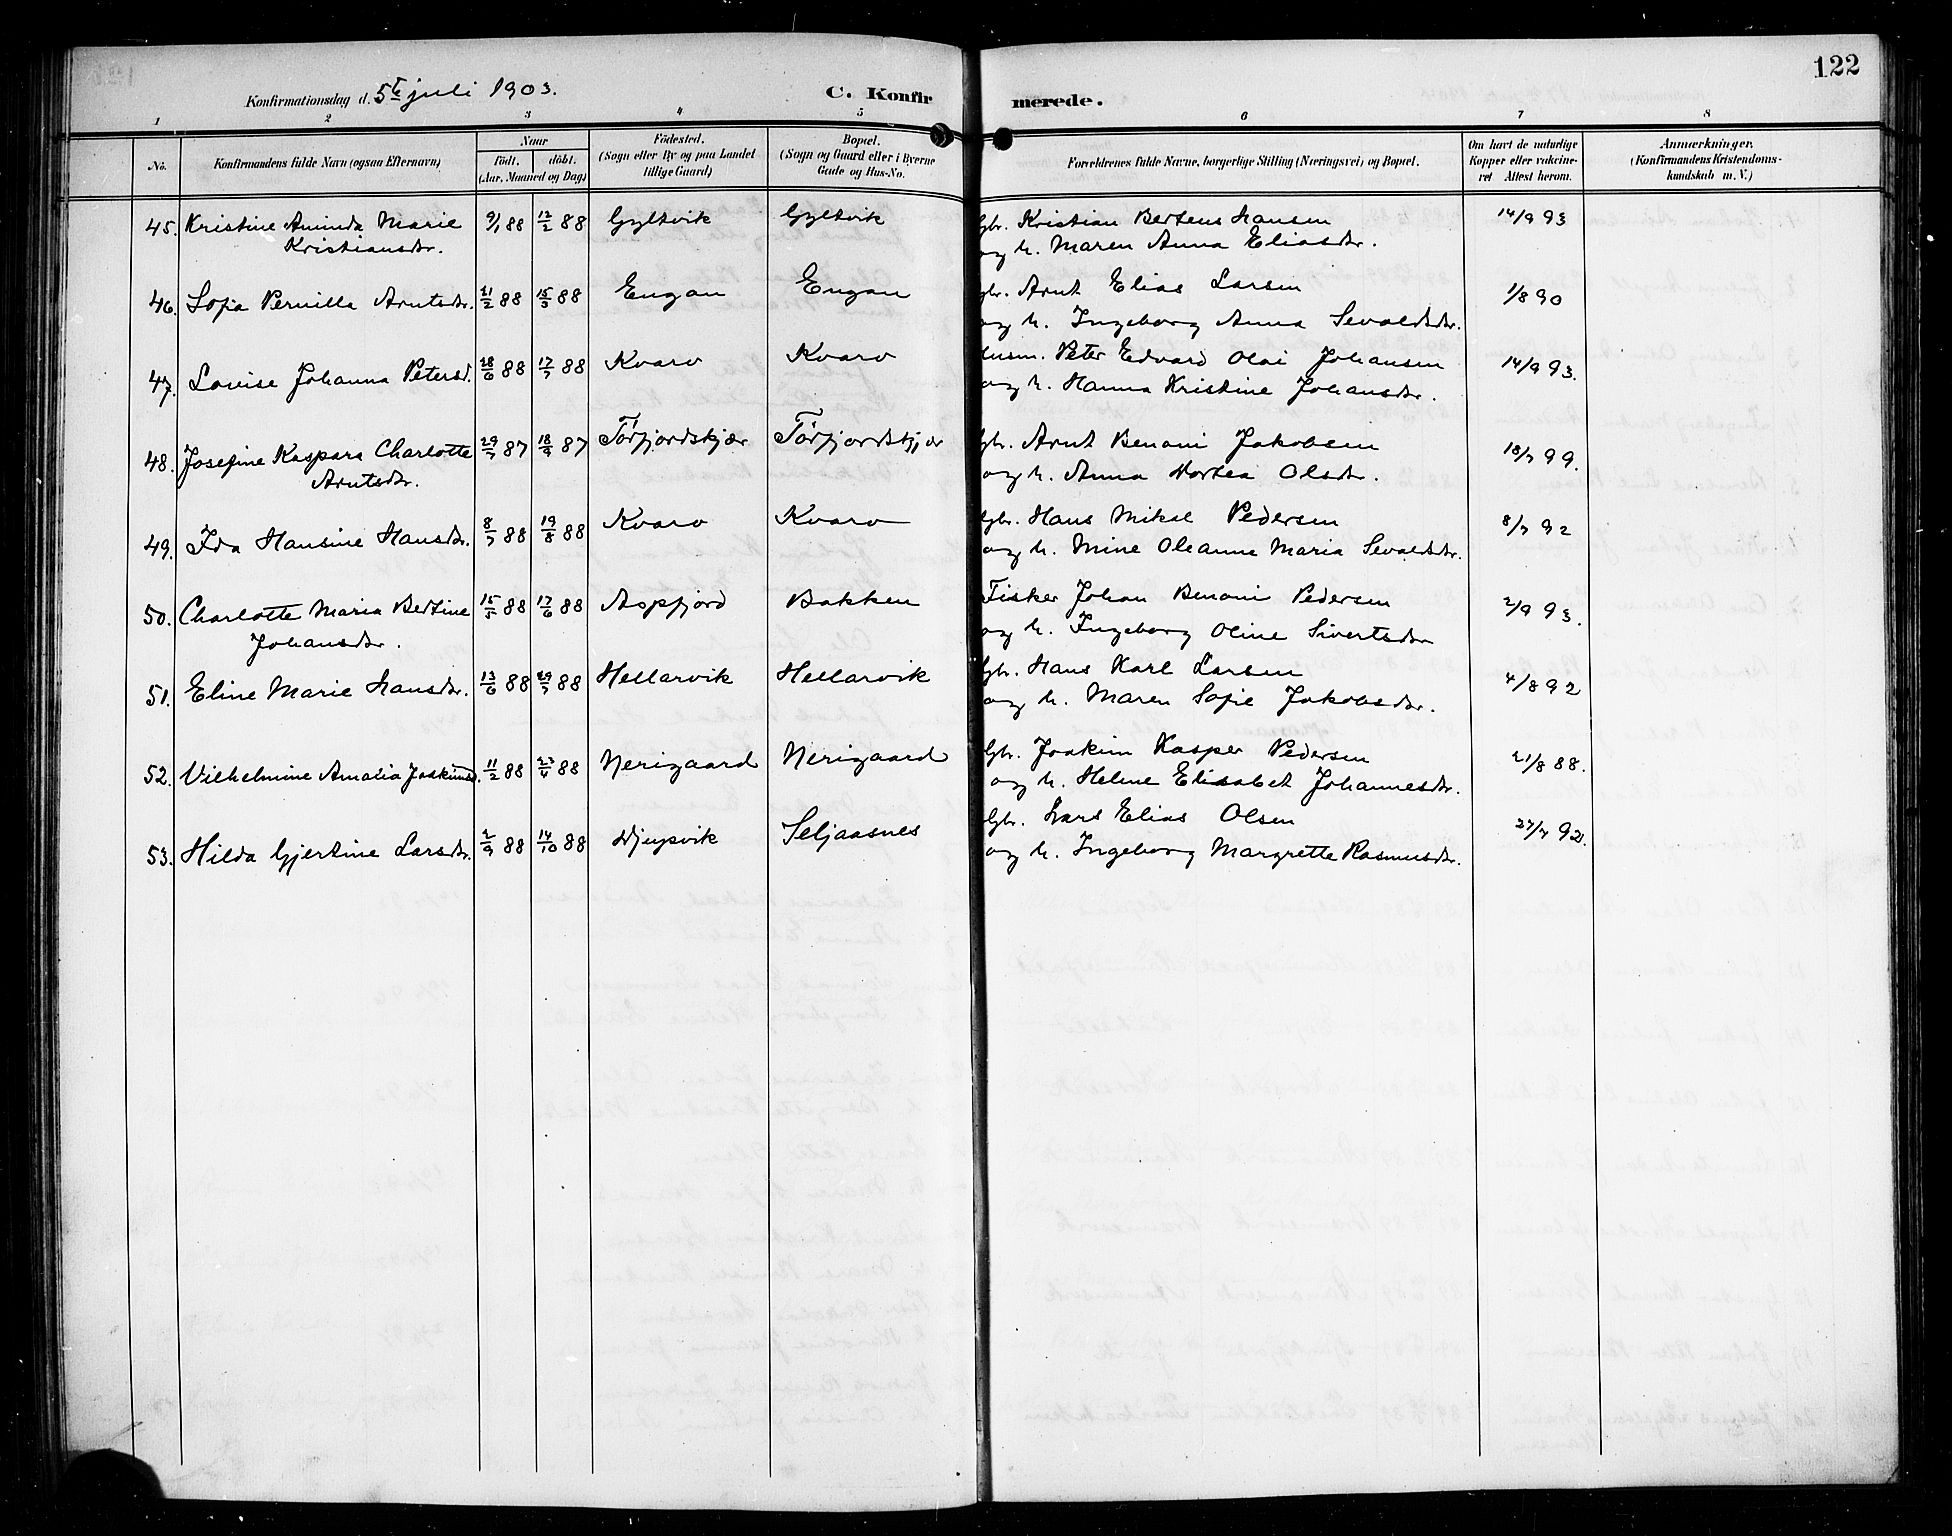 122
Konfirmationsdag d. 5te juli 1903. C. Konfirmerede.
1 2 3 4 5 6 7 8
No. Konfirmandens fulde Navn (ogsaa Efternavn) Naar født. døbt. (Aar, Maaned og Dag) Fødested. (Sogn eller By og paa Landet tillige Gaard) Bopæl. (Sogn og Gaard eller i Byerne Gade og Hus-No. Forældrenes fulde Navne, borgerlige Stilling (Næringsvei) og Bopæl. Om havt de naturlige Kopper eller vakcineret Attest herom. Anmærkninger. (Konfirmandens Kristendomskundskab m. V.)
45. Kristine Aminda Marie 9/1 88 12/2 88 Gyltvik Gyltvik Gbr. Kristian Bertens Hansen 14/9 93
Kristiansdr. og h. Maren Anna Eliasdr.
46. Sofia Pernilla Arntsdr. 21/2 88 15/3 88 Engan Engan Gbr. Arnt Elias Larsen 1/8 90
og h. Ingeborg Anna Sevaldsdr.
47. Lovise Johanna Petersd. 18/6 88 17/7 88 Kvarv Kvarv Husm. Peter Edvard Olai Johansen 14/9 93.
og h. Hanna Kristine Johansdr.
48. Josefine Kaspara Charlotte 29/7 87 18/9 87 Tørfjordskjær Tørfjordskjær Gbr. Arnt Benoni Jakobsen 18/7 99.
Arntsdr. og h. Anna Dortea Olsdr.
49. Ida Hansine Hansdr. 8/7 88 19/8 88 Kvarv Kvarv Gbr. Hans Mikal Pedersen 8/7 92
og h. Mine Oleanna Maria Sevaldsdr.
50. Charlotte Maria Bertine 15/5 88 17/6 88 Aspfjord Bakken Fisker Johan Benoni Pedersen 2/9 93.
Johansdr. og h. Ingeborg Oline Sivertsdr
51. Eline Marie Hansdr. 13/6 88 29/7 88 Hellarvik Hellarvik Gbr. Hans Karl Larsen 4/8 92
og h. Maren Sofie Jakobsdr.
52. Vilhelmine Amalia Joakimsd. 11/2 88 23/4 88 Nerigaard Nerigaard Gbr. Joakim Kasper Pedersen 21/8 88.
og h. Helene Elisabet Johannesdr.
53. Hilda Gjertine Larsdr. 2/9 88 14/10 88 Djupvik Seljaasnes Gbr. Lars Elias Olsen 27/7 92.
og h. Ingeborg Margrette Rasmusdr.